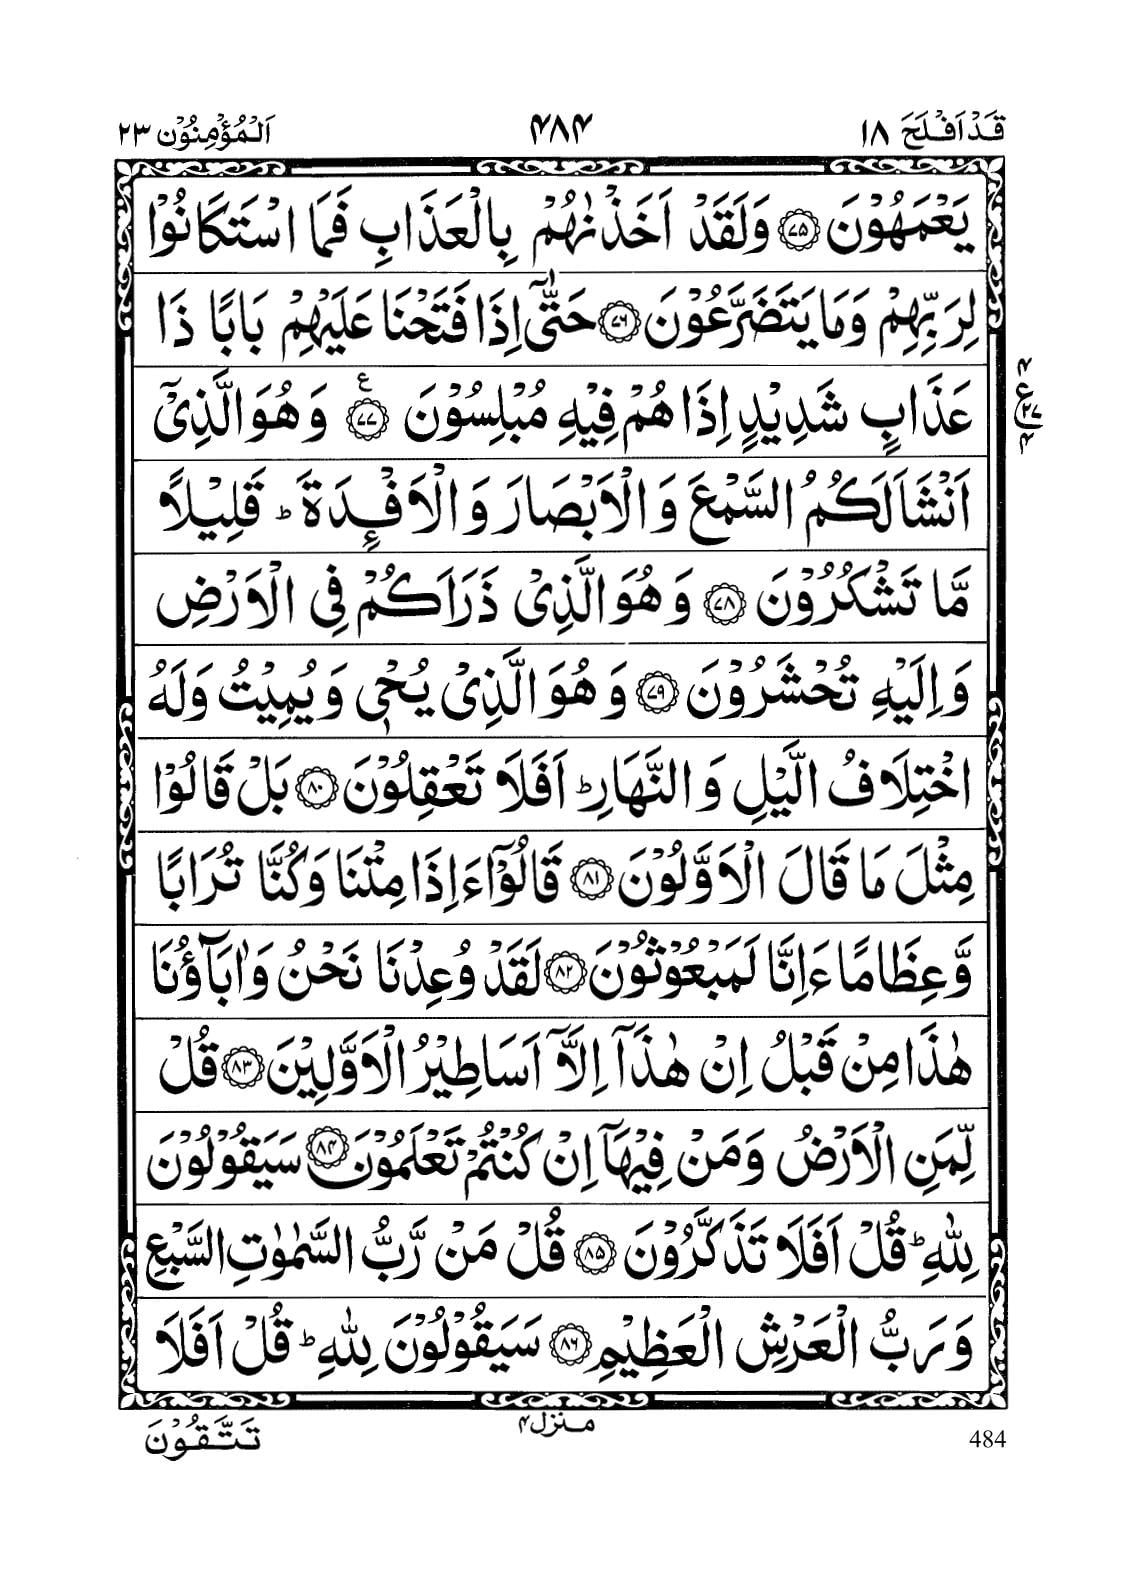 قَدۡاَفۡلَحَ ۱۸
۴۸۴
اَلۡمُؤۡمِنُوۡن ۲۳
يَعۡمَهُوۡنَ ۝۷۵ وَلَقَدۡ اَخَذۡنٰهُمۡ بِالۡعَذَابِ فَمَا اسۡتَكَانُوۡا
لِرَبِّهِمۡ وَمَا يَتَضَرَّعُوۡنَ ۝۷۶ حَتّٰٓى اِذَا فَتَحۡنَا عَلَيۡهِمۡ بَابًا ذَا
عَذَابٍ شَدِيۡدٍ اِذَا هُمۡ فِيۡهِ مُبۡلِسُوۡنَ ۝۷۷ ع وَهُوَ الَّذِىۡۤ
اَنۡشَاَ لَكُمُ السَّمۡعَ وَالۡاَبۡصَارَ وَالۡاَفۡـِٕدَةَ ؕ قَلِيۡلًا
مَّا تَشۡكُرُوۡنَ ۝۷۸ وَهُوَ الَّذِىۡ ذَرَاَكُمۡ فِى الۡاَرۡضِ
وَاِلَيۡهِ تُحۡشَرُوۡنَ ۝۷۹ وَهُوَ الَّذِىۡ يُحۡىٖ وَيُمِيۡتُ وَلَهُ
اخۡتِلَافُ الَّيۡلِ وَالنَّهَارِ ؕ اَفَلَا تَعۡقِلُوۡنَ ۝۸۰ بَلۡ قَالُوۡا
مِثۡلَ مَا قَالَ الۡاَوَّلُوۡنَ ۝۸۱ قَالُوۡۤا ءَاِذَا مِتۡنَا وَكُنَّا تُرَابًا
وَّعِظَامًا ءَاِنَّا لَمَبۡعُوۡثُوۡنَ ۝۸۲ لَقَدۡ وُعِدۡنَا نَحۡنُ وَاٰبَآؤُنَا
هٰذَا مِنۡ قَبۡلُ اِنۡ هٰذَاۤ اِلَّاۤ اَسَاطِيۡرُ الۡاَوَّلِيۡنَ ۝۸۳ قُلۡ
لِّمَنِ الۡاَرۡضُ وَمَنۡ فِيۡهَاۤ اِنۡ كُنۡتُمۡ تَعۡلَمُوۡنَ ۝۸۴ سَيَقُوۡلُوۡنَ
لِلّٰهِ ؕ قُلۡ اَفَلَا تَذَكَّرُوۡنَ ۝۸۵ قُلۡ مَنۡ رَّبُّ السَّمٰوٰتِ السَّبۡعِ
وَرَبُّ الۡعَرۡشِ الۡعَظِيۡمِ ۝۸۶ سَيَقُوۡلُوۡنَ لِلّٰهِ ؕ قُلۡ اَفَلَا
تَتَّقُوۡنَ
منزل۴
484